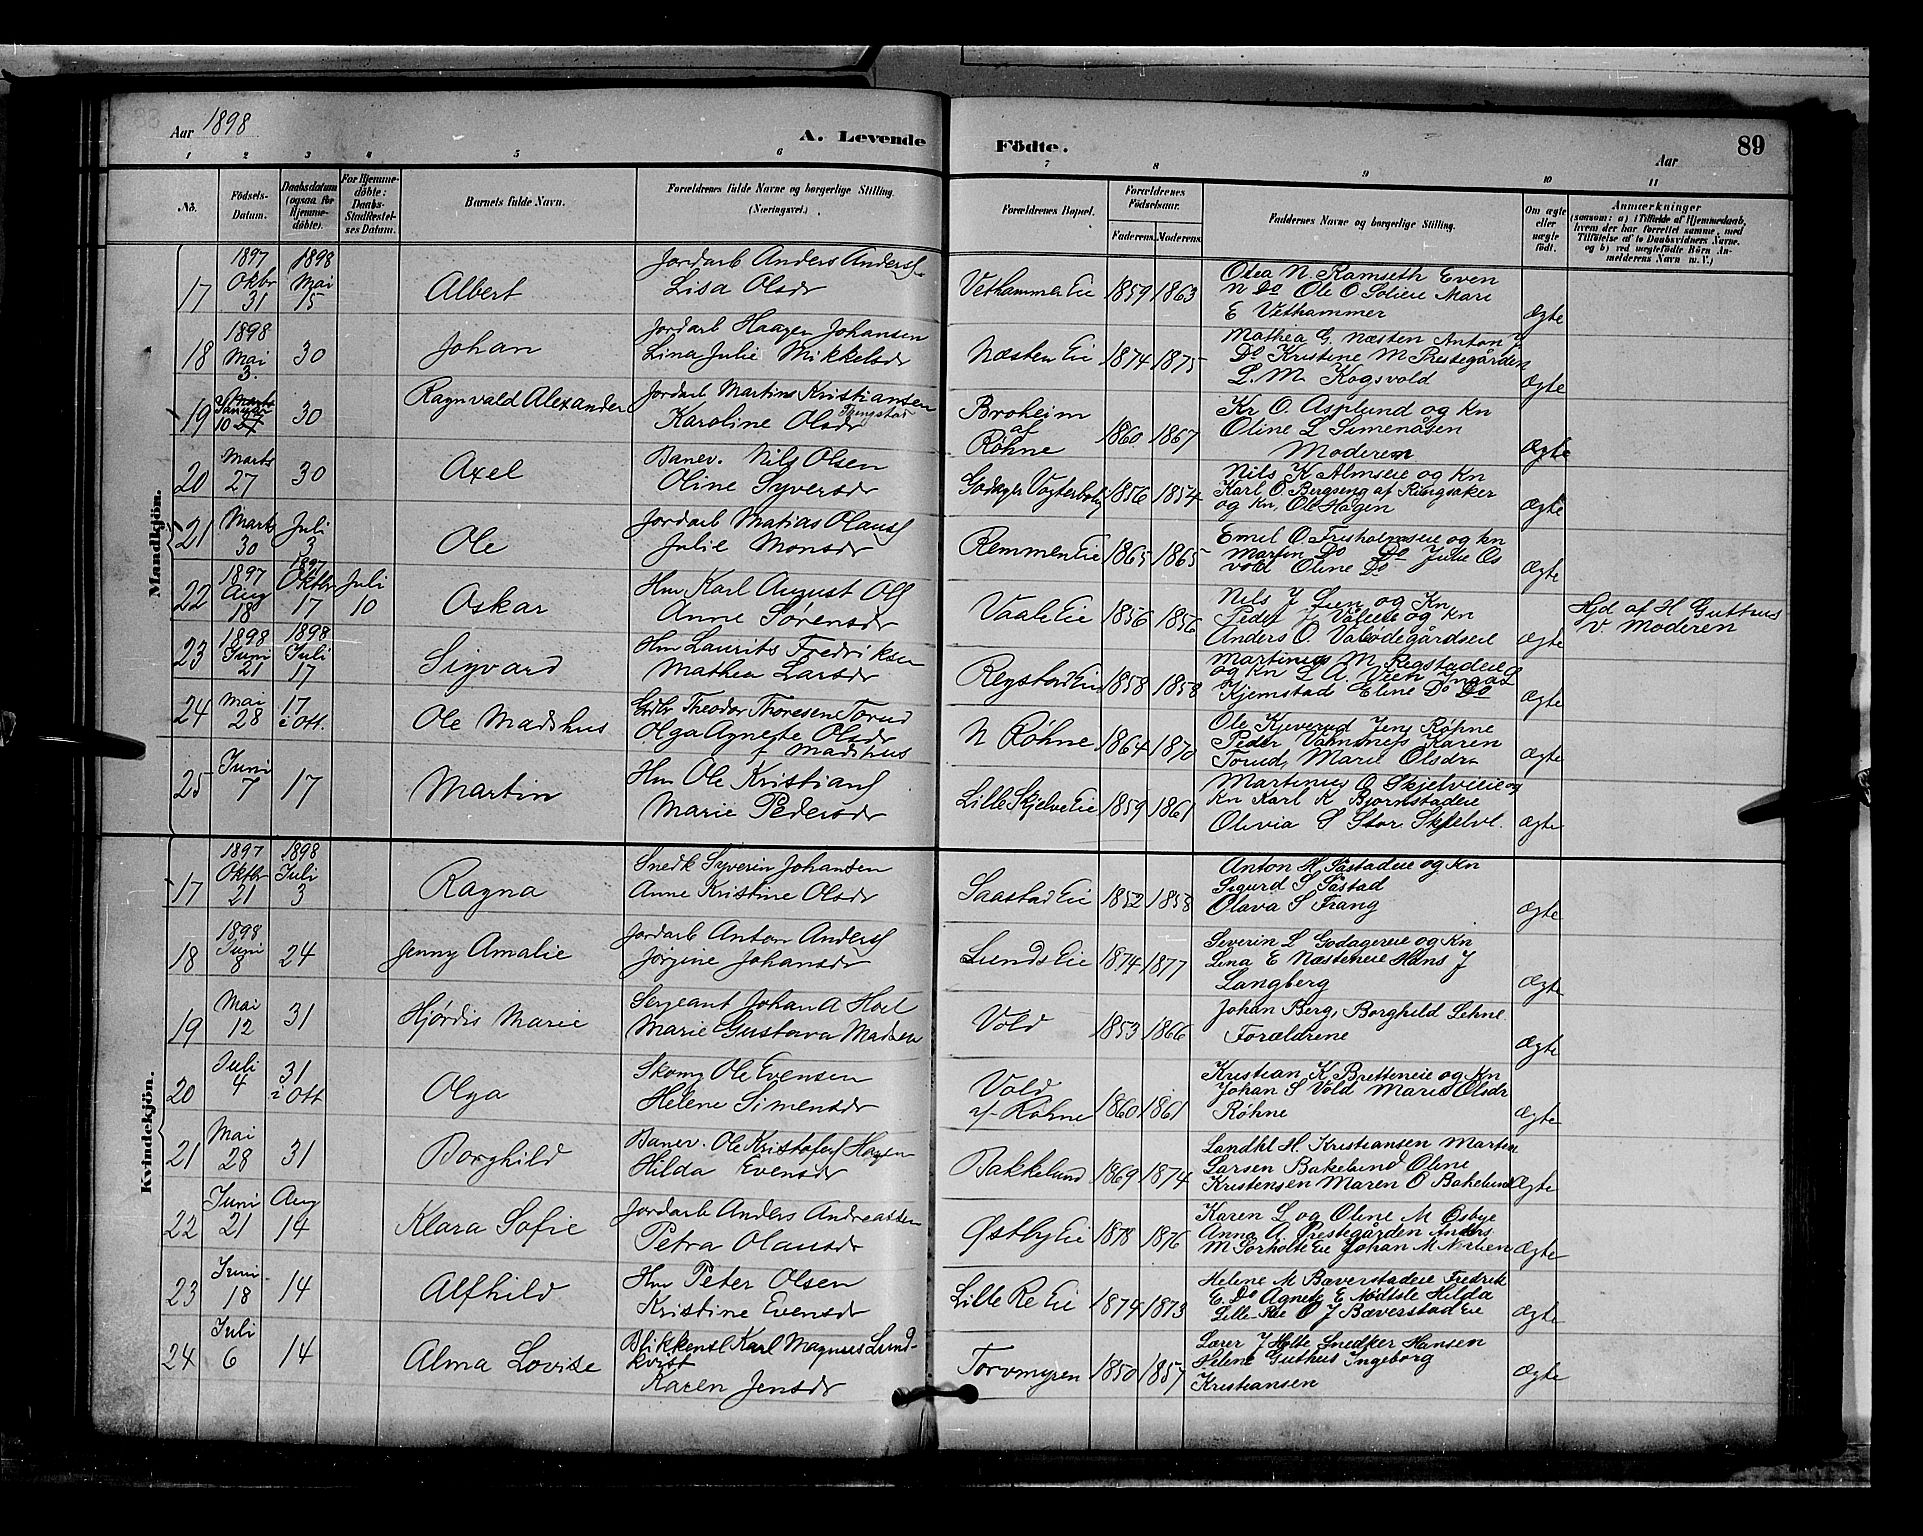 Aar 1898
A. Levende Födte.
Aar
89
1 2 3 4 5 6 7 8 9 10 11
No.
Födsels-Datum.
Daabsdatum (ogsaa for Hjemme-döbte).
For Hjemme-döbte: Daabs-Stadfestel-ses Datum.
Barnets fulde Navn.
Forældrenes fulde Navne og borgerlige Stilling. (Næringsvei.)
Forældrenes Bopæl.
Forældrenes Födselsaar.
Faderens. Moderens.
Faddernes Navne og borgerlige Stilling.
Om ægte eller uægte födt.
Anmærkninger
(saasom: a) i Tilfælde af Hjemmedaab, hvem der har forrettet samme, med Tilföielse af to Daabsvidners Navne, og b) ved uægtefödte Börn Anmelderens Navn m. V.)
Mandkjön.
17 1897 Oktbr 31 1898 Mai 15 Albert Jordarb Anders Anders. Lisa Olsdr Vethammer Eie 1859 1863 Otea N Ramseth Even N Do Ole O Solieie Mari E Vethammer Ægte
18 1898 Mai 3. 30 Johan Jordarb Haagen Johansen Lina Julie Mikkelsdr Næsten Eie 1874 1875 Mathea G. Næsten Anton Do Kristine M Prestegården L. M. Kogsvold Ægte
19 Januar 10 30 Ragnvald Alexander Jordarb Martins Kristiansen Karoline Olsdr Broheim af Røhne 1860 1867 Kr O. Asplund og Kn Oline L Simensen Moderen Ægte
20 Marts 27 30 Axel Banev. Nils Olsen Oline Syversdr Godager Vogterbolig 1856 1854 Nils K Almseie og Kn Karl O. Bergseng af Ringsaker og Kn, Ole Hagen Ægte
21 Marts 30 Juli 3 Ole Jordarb Matias Olaus. Julie Monsdr Remmen Eie 1865 1865 Emil O Frisholmseie og Kn Martin Do Do Julie Os vold Oline Do Ægte
22 1897 Aug 18 1897 Oktbr 17 Juli 10 Oskar Hm Karl August Ols. Anne Sørensdr Vaale Eie 1856 1856 Nils J Lien og Kn Peder Valeeie og Kn Anders O. Valeødegårdseie Ægte Hjd af H Guthus v. Moderen
23 1898 Juni 21 1898 Juli 17 Sigvard Hm Laurits Fredriksen Mathea Larsdr Regstad Eie 1858 1858 Martinus M Regstadeie og Kn L A. Vien Inga L Kjemstad Eline Do Do Ægte
24 Mai 28 17 i Ott. Ole Madshus Theodor Thoresen Torud Olga Agnethe Olsdr f Madshus N Røhne 1864 1870 Ole Kjeverud Jens Røhne Peder Karen Torud, Marie Olsdr Ægte
25 Juni 7 17 Martin Hm Ole Kristians. Marie Pedersdr Lille Skjelve Eie 1859 1861 Martinus O Skjelveeie og Kn Karl K Bjørnstadeie Olivia S Stor Skjelve. Ægte
Kvindekjön.
17 1897 Oktbr 21 1898 Juli 3 Ragna Snedk Syverin Johansen Anne Kristine Olsdr Saastad Eie 1852 1858 Anton H. Såstadeie og Kn Sigurd S Såstad Olava S Frang Ægte
18 1898 Juni 8 24 Jenny Amalie Jordarb Anton Anders. Jørgine Johansdr Lunds Eie 1874 1877 Severin L Godagereie og Kn Lina E Næsteneie Hans J Langberg Ægte
19 Mai 12 31 Hjørdis Marie Sergeant Johan A Hoel Marie Gustava Madsen Vold 1853 1866 Johan Berg, Borghild Lehne Forældrene Ægte
20 Juli 4 31 i Ott Olga Skom Ole Evensen Helene Simensdr Vold af Røhne 1860 1861 Kristian K Bretteneie og Kn Johan S Vold Marie Olsdr Røhne Ægte
21 Mai 28 31 Borghild Banev. Ole Kristofers. Hagen Hilda Evensdr Bakkelund 1869 1874 Landhl H. Kristiansen Martin Larsen Bakelund Oline Kristensen Maren O Bakelund Ægte
22 Juni 21 Aug 14 Klara Sofie Jordarb Anders Andreassen Petra Olausdr Østby Eie 1878 1876 Karen L og Oline M Osbye Anna A. Prestegården Anders M Sorholte Eie Johan M Ægte
23 Juni 18 14 Alfhild Hm Peter Olsen Kristine Evensdr Lille Re Eie 1874 1873 Helene M Bæverstadeie Fredrik E. Do Agnete E Hilda Lille Ree O J Bæverstad Eie Ægte
24 Juli 6 14 Alma Lovise Blikkensl Karl Magnus Lund-kvist Karen Jensdr Torvmyren 1850 1857 Lærer J Holte Snedker Hansen Helene Guthus Ingeborg Kristiansen Ægte